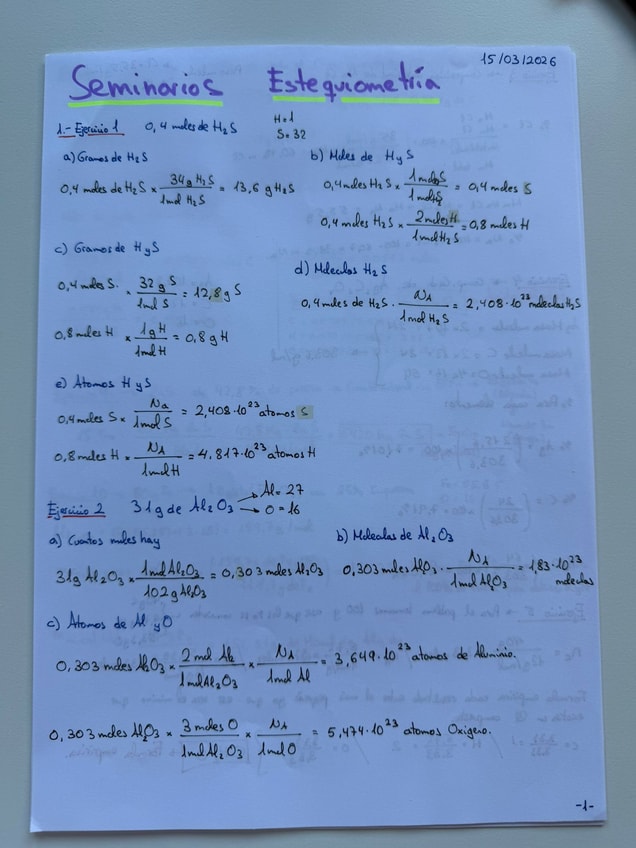 15/03/2026
Seminarios Estequiometría
1.- Ejercicio 1 0,4 moles de H₂S H=1 S=32
a) Gramos de H₂S
0,4 moles de H₂S × 34g H₂S / 1mol H₂S = 13,6 g H₂S
b) Moles de H y S
0,4 moles H₂S × 1 mol S / 1 mol H₂S = 0,4 moles S
0,4 moles H₂S × 2 moles H / 1mol H₂S = 0,8 moles H
c) Gramos de H y S
0,4 moles S · × 32 g S / 1mol S = 12,8 g S
0,8 moles H × 1g H / 1mol H = 0,8 g H
d) Moleculas H₂S
0,4 moles de H₂S · NA / 1mol H₂S = 2,408·10²³ moleculas H₂S
e) Atomos H y S
0,4 moles S × Na / 1mol S = 2,408·10²³ atomos S
0,8 moles H × NA / 1mol H = 4,817·10²³ atomos H
Ejercicio 2 31g de Al₂O₃ → Al = 27 → O = 16
a) Cuantos moles hay
31g Al₂O₃ × 1mol Al₂O₃ / 102 g Al₂O₃ = 0,303 moles Al₂O₃
b) Moleculas de Al₂O₃
0,303 moles Al₂O₃ · NA / 1mol Al₂O₃ = 1,83·10²³ moleculas
c) Atomos de Al y O
0,303 moles Al₂O₃ × 2 mol Al / 1mol Al₂O₃ × NA / 1mol Al = 3,649·10²³ atomos de Aluminio.
0,303 moles Al₂O₃ × 3 moles O / 1mol Al₂O₃ × NA / 1mol O = 5,474·10²³ atomos Oxigeno.
-1-